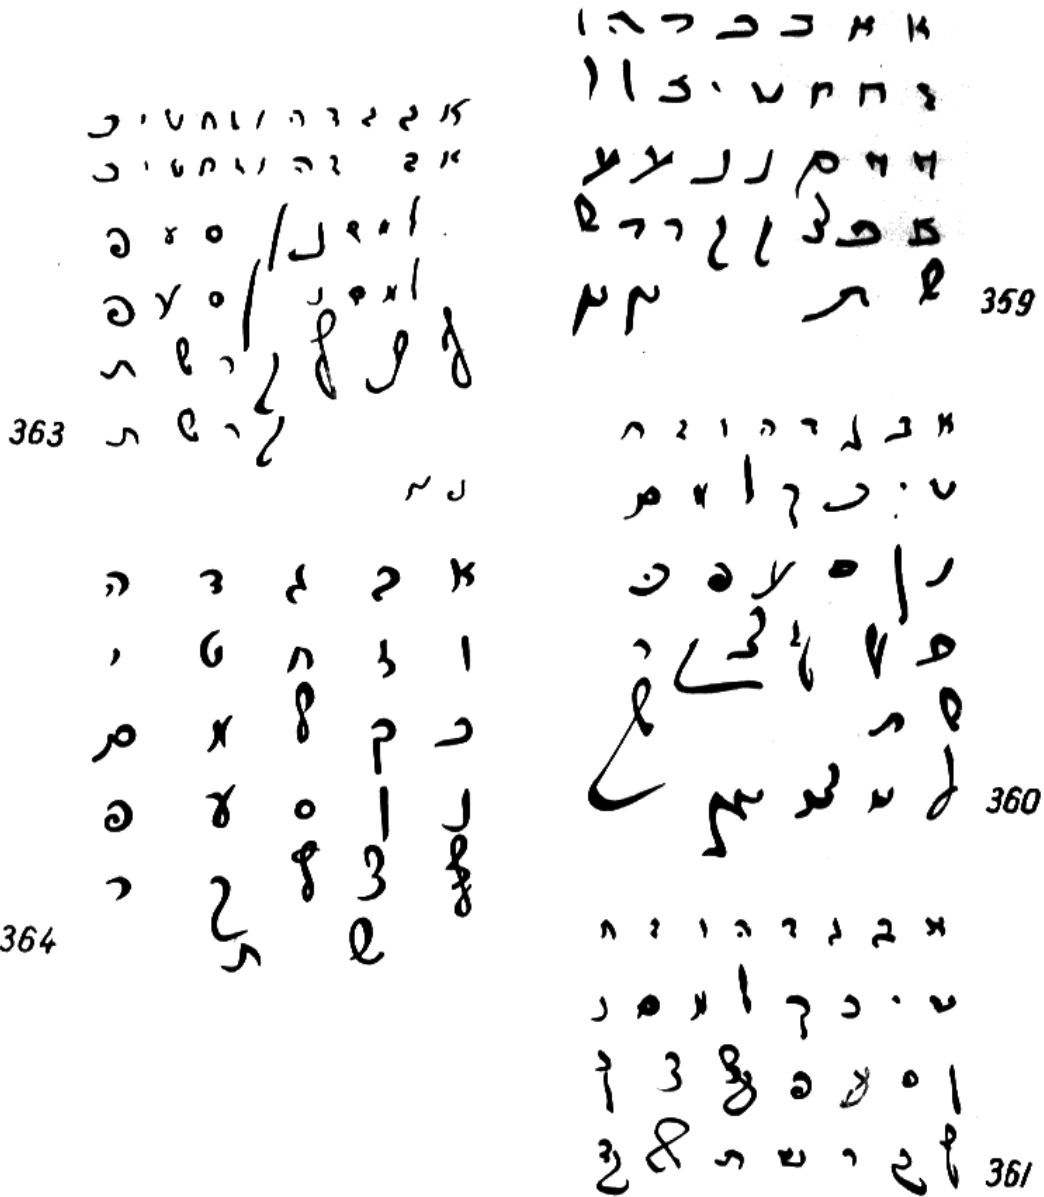 א א ב ב ד ה ו
ז ח ח ט י
מ מ ם נ נ ע ע
פ צ ץ ק ר ר ש
ש ת
359
א ב ג ד ה ו ז ח
ט י כ ך ל מ ם
נ ן ס ע פ
ר
ש ת
360
א ב ג ד ה ו ז ח
ט י כ ך ל מ ם נ
ן ס ע פ ף צ ץ
ק ר ש ת
361
א ב ג ד ה ו ז ח ט י כ
א ב ד ה ו ז ח ט י כ
ל מ ם נ ן ס ע פ
ל מ ם נ ן ס ע פ
ף צ ץ ק ר ש ת
ק ר ש ת
363
א ב ג ד ה
ו ז ח ט י
כ ך ל מ ם
נ ן ס ע פ
ף צ ץ ק ר
ש ת
364